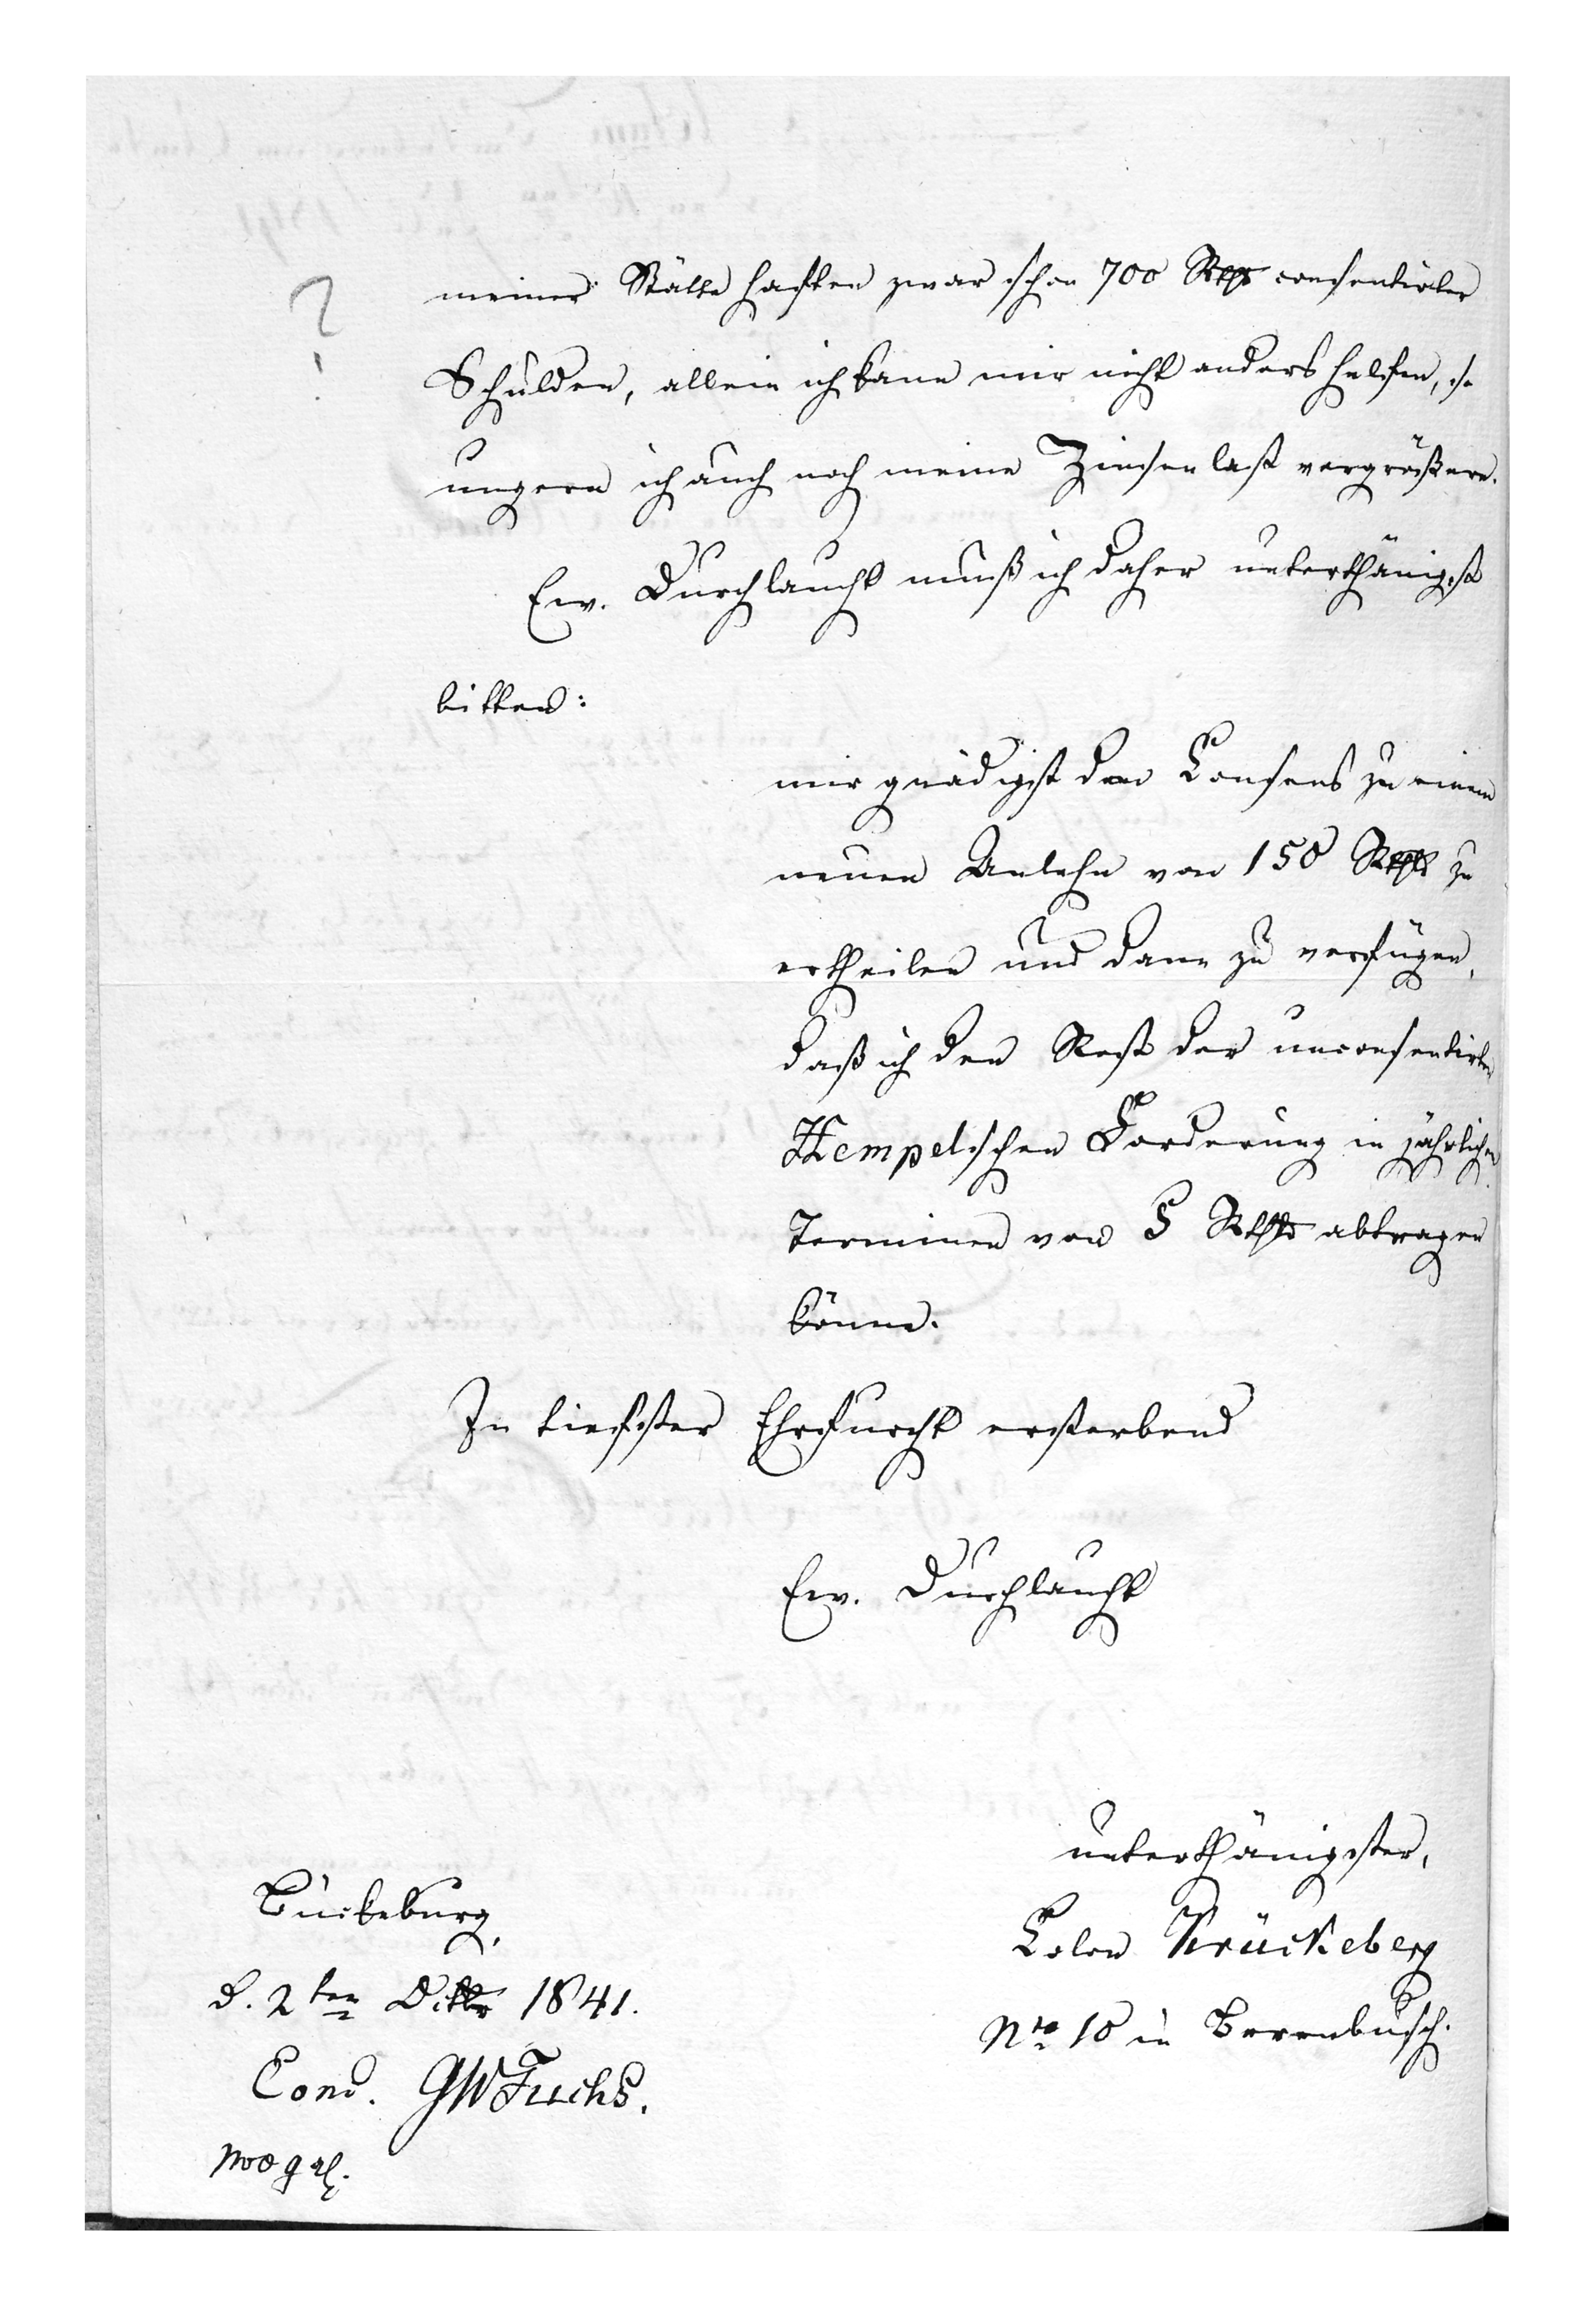 ?
meiner Stätte haften zwar schon 700 Rthlr consentirter
Schulden, allein ich kann mir nicht anders helfen, so
ungern ich auch noch meine Zinsenlast vergrößere.
Ew. Durchlaucht muß ich daher unterthänigst
bitten:
mir gnädigst den Consens zu einem
neuen Anlehn von 150 Rthlr zu
ertheilen und dann zu verfügen,
daß ich den Rest der unconsentirten
Hempelschen Forderung in jährlichen
Terminen von 5 Rthlr abtragen
könne.
In tiefster Ehrfurcht ersterbend
Ew. Durchlaucht
unterthänigster,
Colon Krückeberg
Nro 10 in Berenbusch.
Bückeburg,
d. 2ten 1841.
Conc. GW Fuchs.